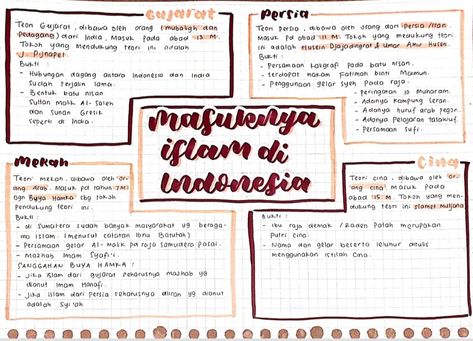 Gujarat
Teori Gujarat, dibawa oleh orang (mubaligh dan
pedagang) dari India, Masuk pada abad 13 M.
Tokoh yang mendukung teori ini adalah
J. Pijnapel.
Bukti :
- Hubungan dagang antara Indonesia dan India
sudah terjalin lama.
- Bentuk batu nisan
Sultan Malik Al-Saleh
dan Sunan Gresik
seperti di India.
Persia
Teori persia, dibawa oleh orang dari Persia/Iran
Masuk pd abad 11 M. Tokoh yang mendukung teori
ini adalah Husein Djajadingrat & Umar Amir Husen
Bukti :
- Persamaan kaligrafi pada batu nisan.
- terdapat makam Fatimah binti Maimun.
- Penggunaan gelar syeh pada raja.
- peringatan 10 muharam.
- Adanya kampung Leran.
- Adanya huruf arab pegon.
- Adanya Pelajaran tasawuf.
- Persamaan sufi.
Masuknya
islam di
indonesia
Mekah
Teori mekah, dibawa oleh or-
ang Arab. Masuk pd tahun 7 M.
agn Buya Hamka sbg tokoh
pendukung teori ini.
Bukti :
- di Sumatera sudah banyak masyarakat yg beraga-
ma islam. (menurut catatan Ibnu Batutah)
- Persamaan gelar Al-Malik pd raja samudera pasai.
- Mazhab Imam Syafi'i.
SANGGAHAN BUYA HAMKA :
- Jika islam dari gujarat seharusnya mazhab yg
dianut Imam Hanafi.
- Jika islam dari persia seharusnya aliran yg dianut
adalah Syi'ah
Cina
Teori cina, dibawa oleh
orang cina masuk pada
abad 15 M. Tokoh yang men-
dukung teori ini slamet muljana
Bukti :
- Ibu raja demak / Raden Patah merupakan
putri cina.
- Nama dan gelar beserta leluhur ditulis
menggunakan istilah Cina.